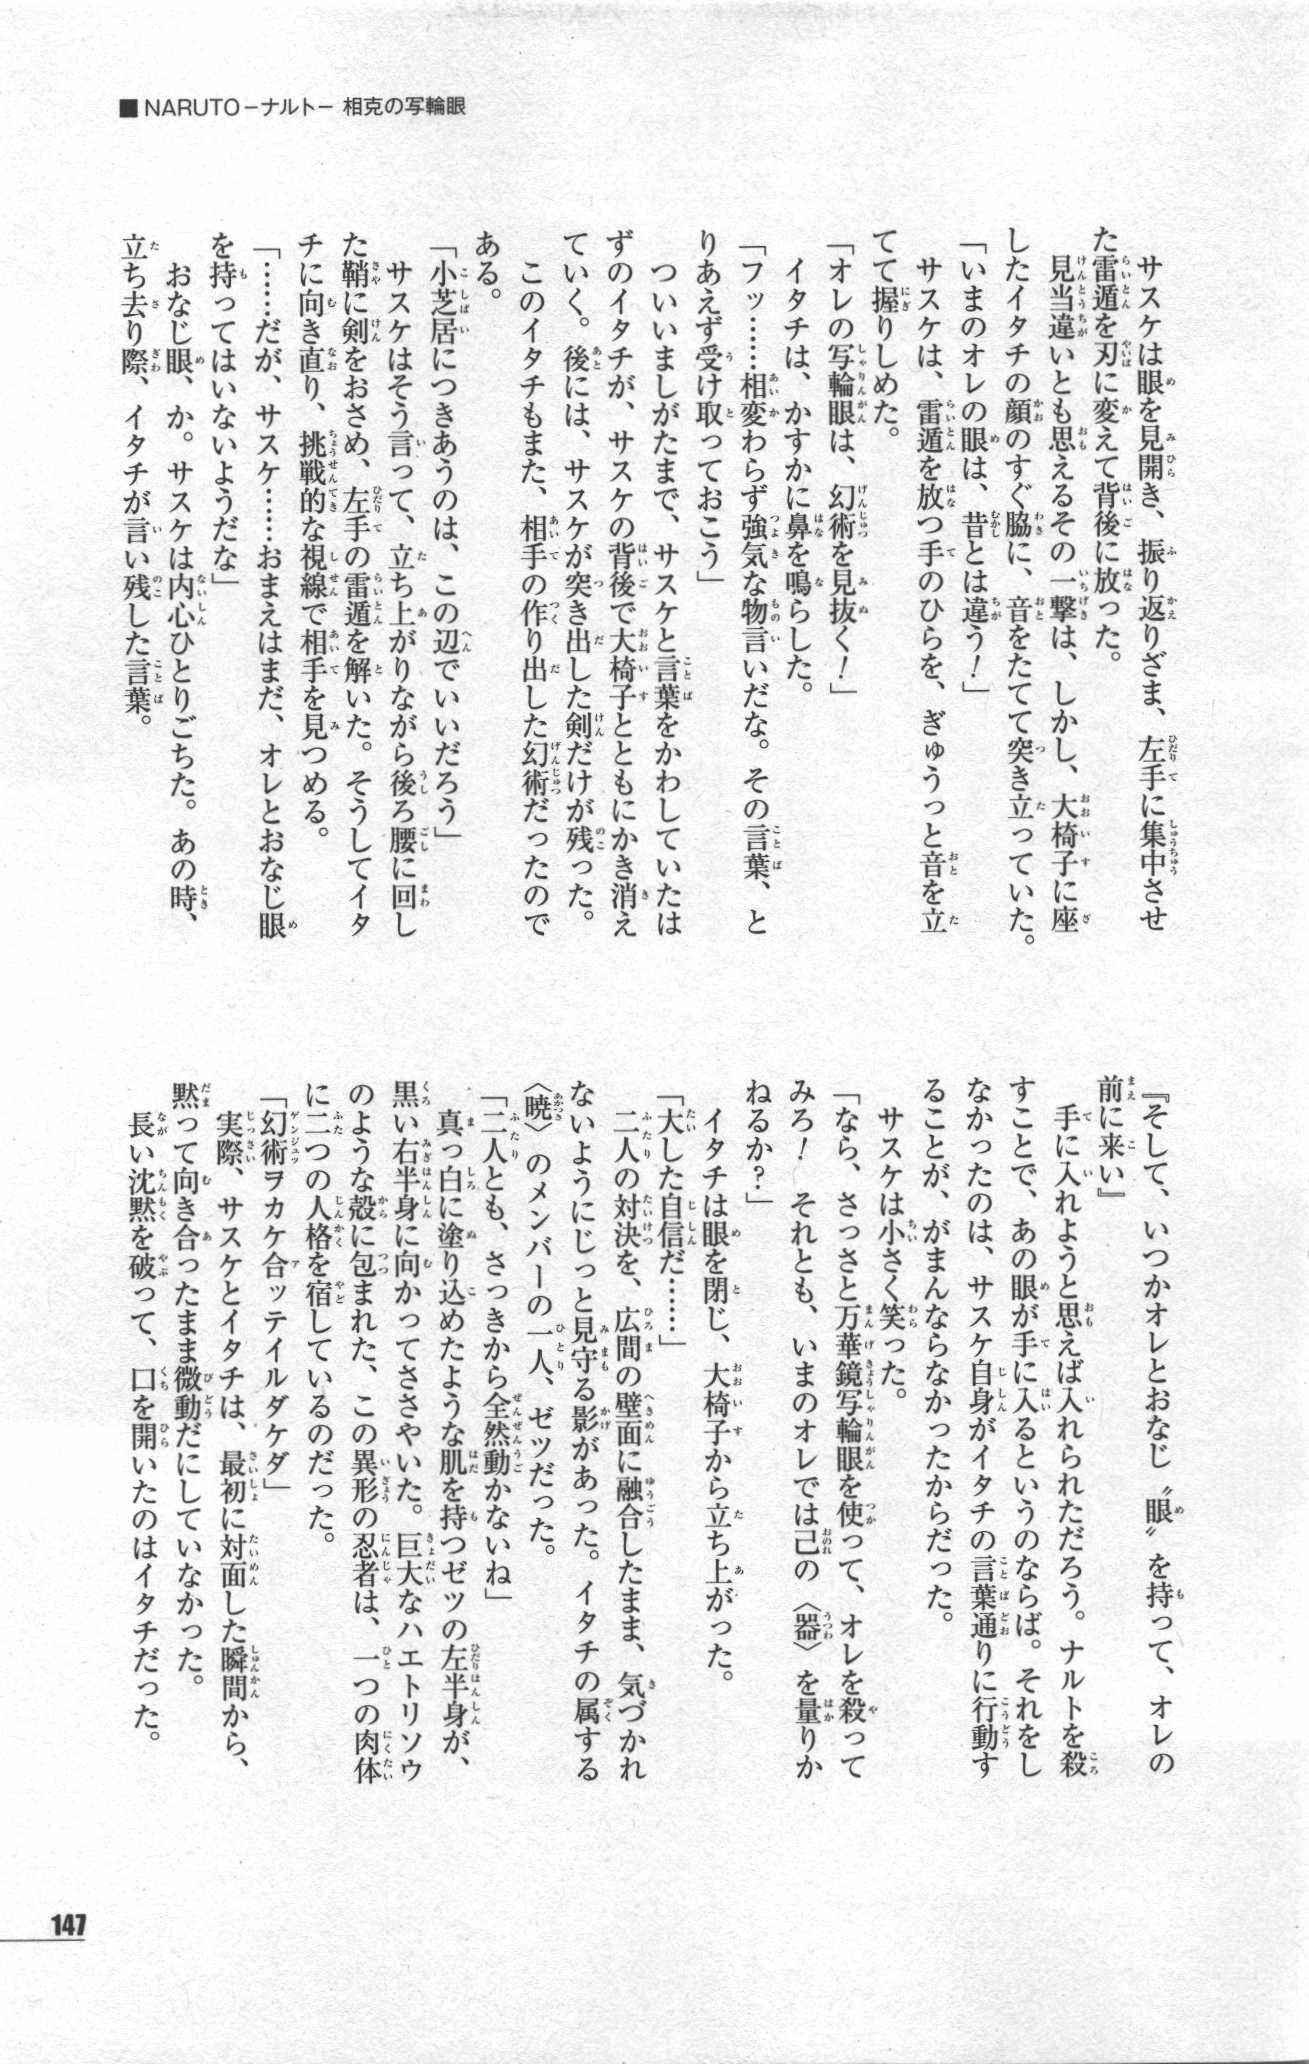 ■NARUTO−ナルト− 相克の写輪眼
サスケは眼を見開き、振り返りざま、左手に集中させ
た雷遁を刃に変えて背後に放った。
見当違いとも思えるその一撃は、しかし、大椅子に座
したイタチの顔のすぐ脇に、音をたてて突き立っていた。
「いまのオレの眼は、昔とは違う！」
サスケは、雷遁を放つ手のひらを、ぎゅうっと音を立
てて握りしめた。
「オレの写輪眼は、幻術を見抜く！」
イタチは、かすかに鼻を鳴らした。
「フッ……相変わらず強気な物言いだな。その言葉、と
りあえず受け取っておこう」
ついいましがたまで、サスケと言葉をかわしていたは
ずのイタチが、サスケの背後で大椅子とともにかき消え
ていく。後には、サスケが突き出した剣だけが残った。
このイタチもまた、相手の作り出した幻術だったので
ある。
「小芝居につきあうのは、この辺でいいだろう」
サスケはそう言って、立ち上がりながら後ろ腰に回し
た鞘に剣をおさめ、左手の雷遁を解いた。そうしてイタ
チに向き直り、挑戦的な視線で相手を見つめる。
「……だが、サスケ……おまえはまだ、オレとおなじ眼
を持ってはいないようだな」
おなじ眼、か。サスケは内心ひとりごちた。あの時、
立ち去り際、イタチが言い残した言葉。
『そして、いつかオレとおなじ〝眼〟を持って、オレの
前に来い』
手に入れようと思えば入れられただろう。ナルトを殺
すことで、あの眼が手に入るというのならば。それをし
なかったのは、サスケ自身がイタチの言葉通りに行動す
ることが、がまんならなかったからだった。
サスケは小さく笑った。
「なら、さっさと万華鏡写輪眼を使って、オレを殺って
みろ！　それとも、いまのオレでは己の〈器〉を量りか
ねるか？」
イタチは眼を閉じ、大椅子から立ち上がった。
「大した自信だ……」
二人の対決を、広間の壁面に融合したまま、気づかれ
ないようにじっと見守る影があった。イタチの属する
〈暁〉のメンバーの一人、ゼツだった。
「二人とも、さっきから全然動かないね」
真っ白に塗り込めたような肌を持つゼツの左半身が、
黒い右半身に向かってささやいた。巨大なハエトリソウ
のような殻に包まれた、この異形の忍者は、一つの肉体
に二つの人格を宿しているのだった。
「幻術ヲカケ合ッテイルダケダ」
実際、サスケとイタチは、最初に対面した瞬間から、
黙って向き合ったまま微動だにしていなかった。
長い沈黙を破って、口を開いたのはイタチだった。
147